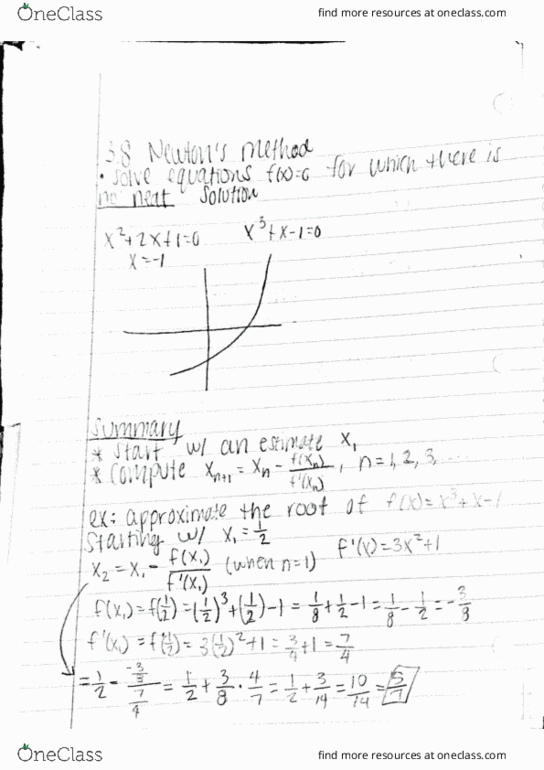 OneClass
find more resources at oneclass.com
3.8 Newton's method
• solve equations f(x)=0 for which there is
no neat solution
x²+2x+1=0 x³+x-1=0
x=-1
Summary
* start w/ an estimate x₁
* compute xₙ₊₁ = xₙ - f(xₙ)/f'(xₙ), n=1,2,3,...
ex: approximate the root of f(x)=x³+x-1
starting w/ x₁=1/2
f'(x)=3x²+1
x₂=x₁- f(x₁)/f'(x₁) (when n=1)
f(x₁)=f(1/2)=(1/2)³+(1/2)-1=1/8+1/2-1=1/8-1/2=-3/8
f'(x₁)=f(1/2)=3(1/2)²+1=3/4+1=7/4
=1/2-(-3/8)/(7/4)=1/2+3/8·4/7=1/2+3/14=10/14=5/7
OneClass
find more resources at oneclass.com